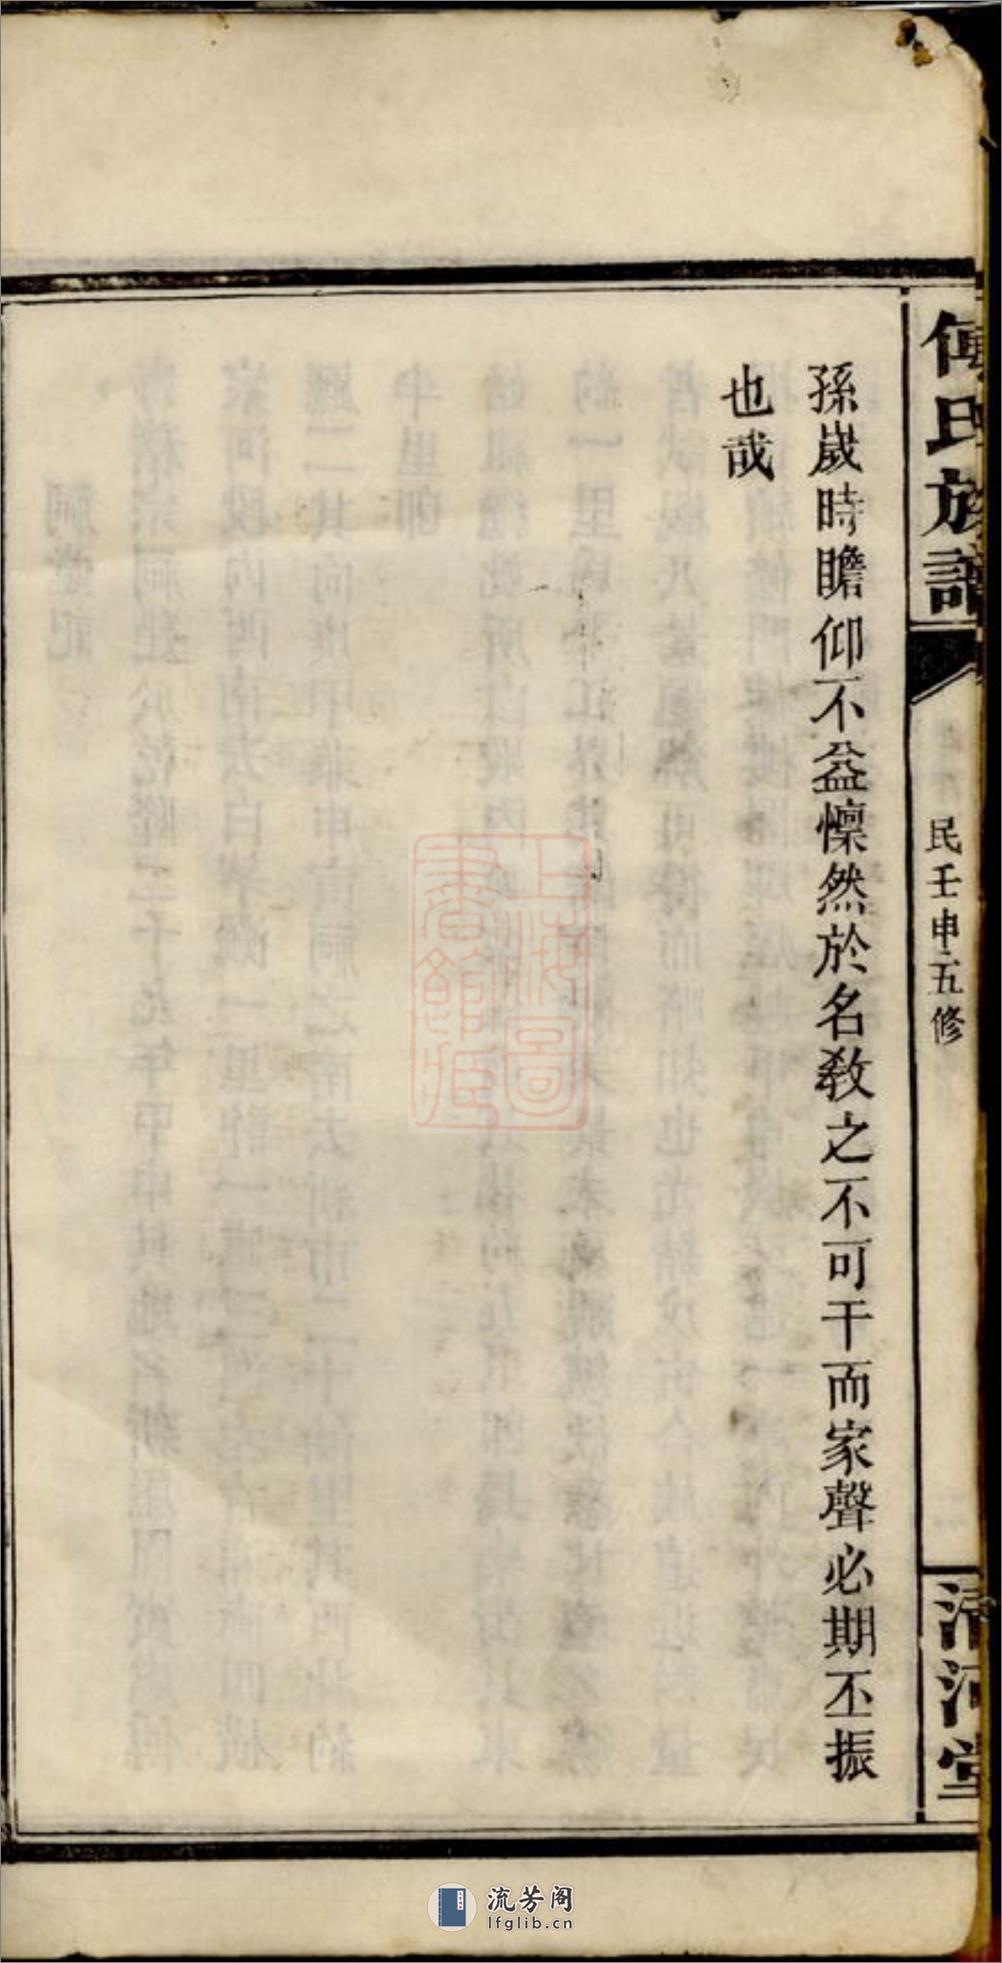 傅氏族譜
民壬申五修
清河堂
孫歲時瞻仰不益懍然於名教之不可干而家聲必期丕振
也哉
上海圖
書館藏
流芳阁
lfglib.cn